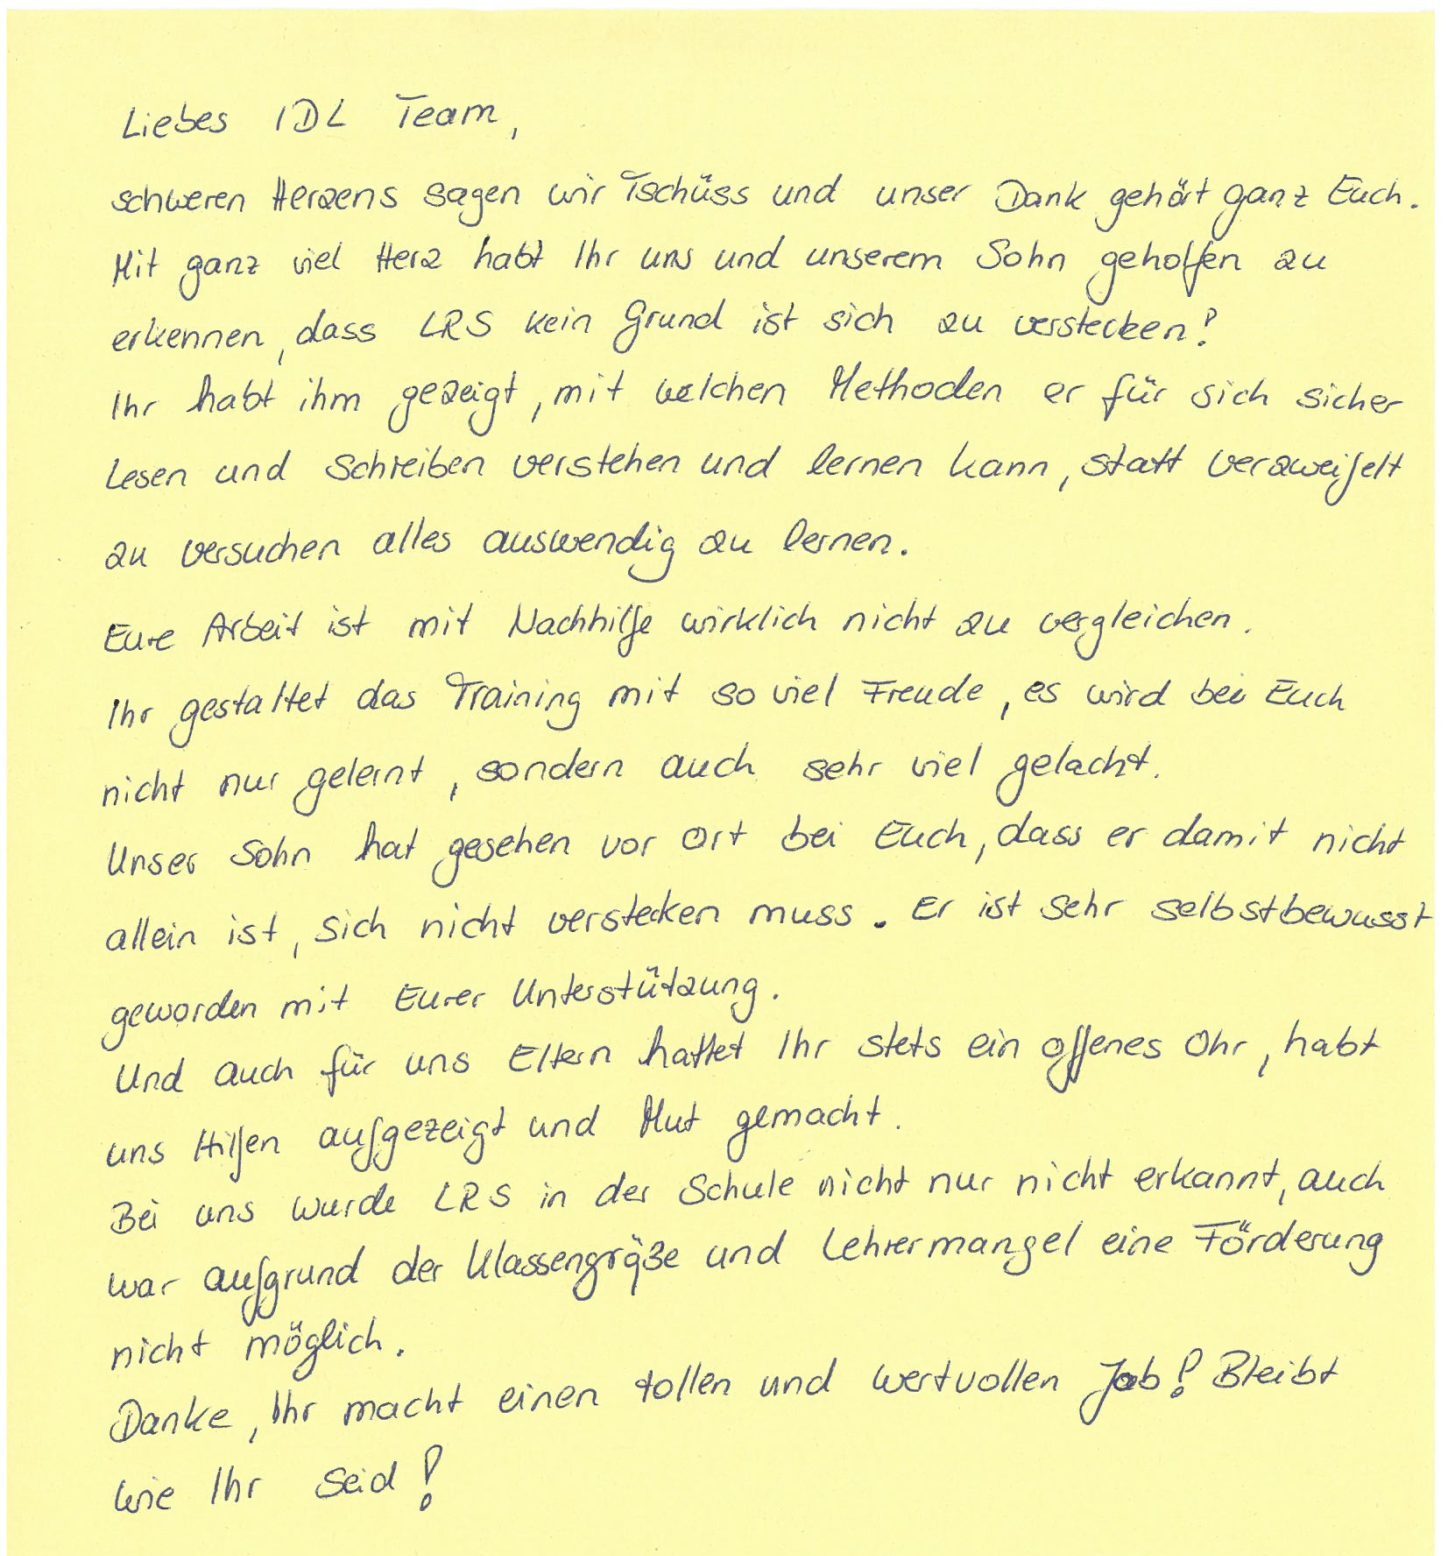 Liebes IDL Team,
schweren Herzens sagen wir Tschüss und unser Dank gehört ganz Euch.
Mit ganz viel Herz habt Ihr uns und unserem Sohn geholfen zu
erkennen, dass LRS kein Grund ist sich zu verstecken!
Ihr habt ihm gezeigt, mit welchen Methoden er für sich sicher
Lesen und Schreiben verstehen und lernen kann, statt verzweifelt
zu versuchen alles auswendig zu lernen.
Eure Arbeit ist mit Nachhilfe wirklich nicht zu vergleichen.
Ihr gestaltet das Training mit so viel Freude, es wird bei Euch
nicht nur gelernt, sondern auch sehr viel gelacht.
Unser Sohn hat gesehen vor Ort bei Euch, dass er damit nicht
allein ist, sich nicht verstecken muss. Er ist sehr selbstbewusst
geworden mit Eurer Unterstützung.
Und auch für uns Eltern hattet Ihr stets ein offenes Ohr, habt
uns Hilfen aufgezeigt und Mut gemacht.
Bei uns wurde LRS in der Schule nicht nur nicht erkannt, auch
war aufgrund der Klassengröße und Lehrermangel eine Förderung
nicht möglich.
Danke, Ihr macht einen tollen und wertvollen Job! Bleibt
wie Ihr Seid!